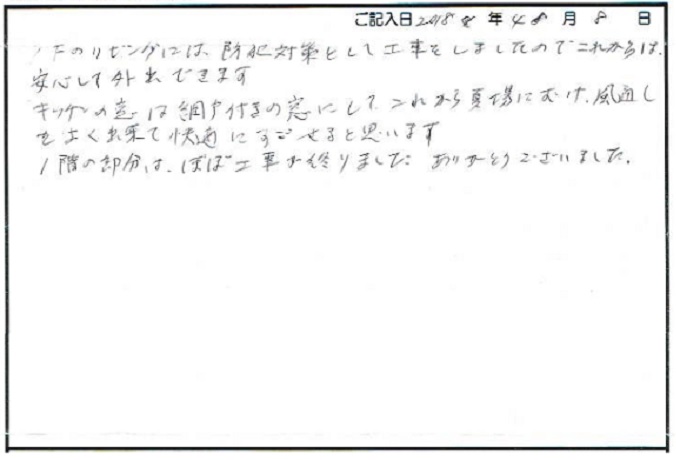 ご記入日 2018 年 4 月 8 日
1Fのリビングには、防犯対策として工事をしましたのでこれからは、
安心して外出できます
キッチンの窓は網戸付きの窓にして、これから夏場にむけ、風通し
をよく出来て快適にすごせると思います
1階の部分は、ほぼ工事が終りました。ありがとうございました。